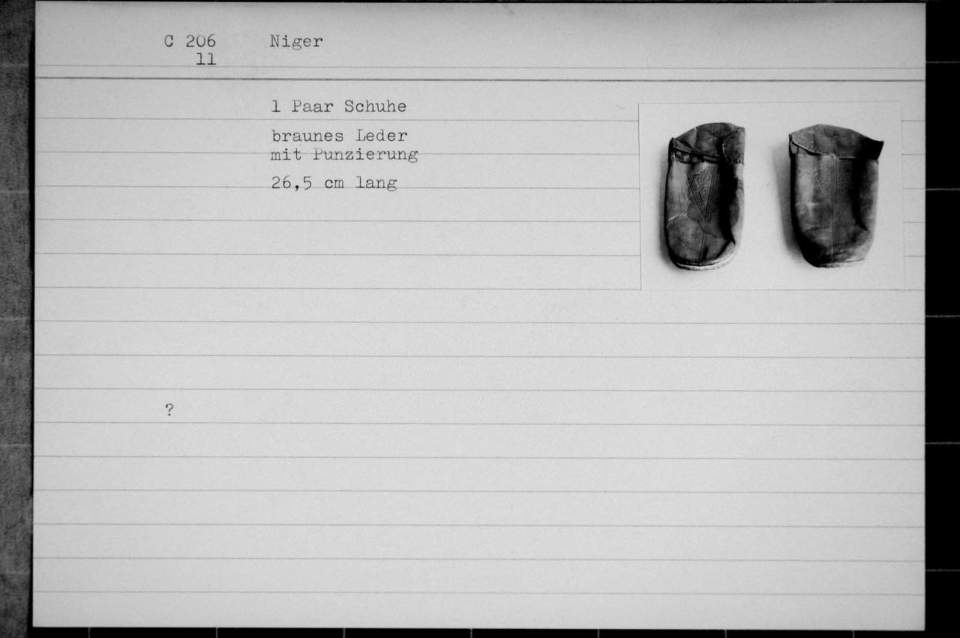 C 206 Niger
11
1 Paar Schuhe
braunes Leder
mit Punzierung
26,5 cm lang
?